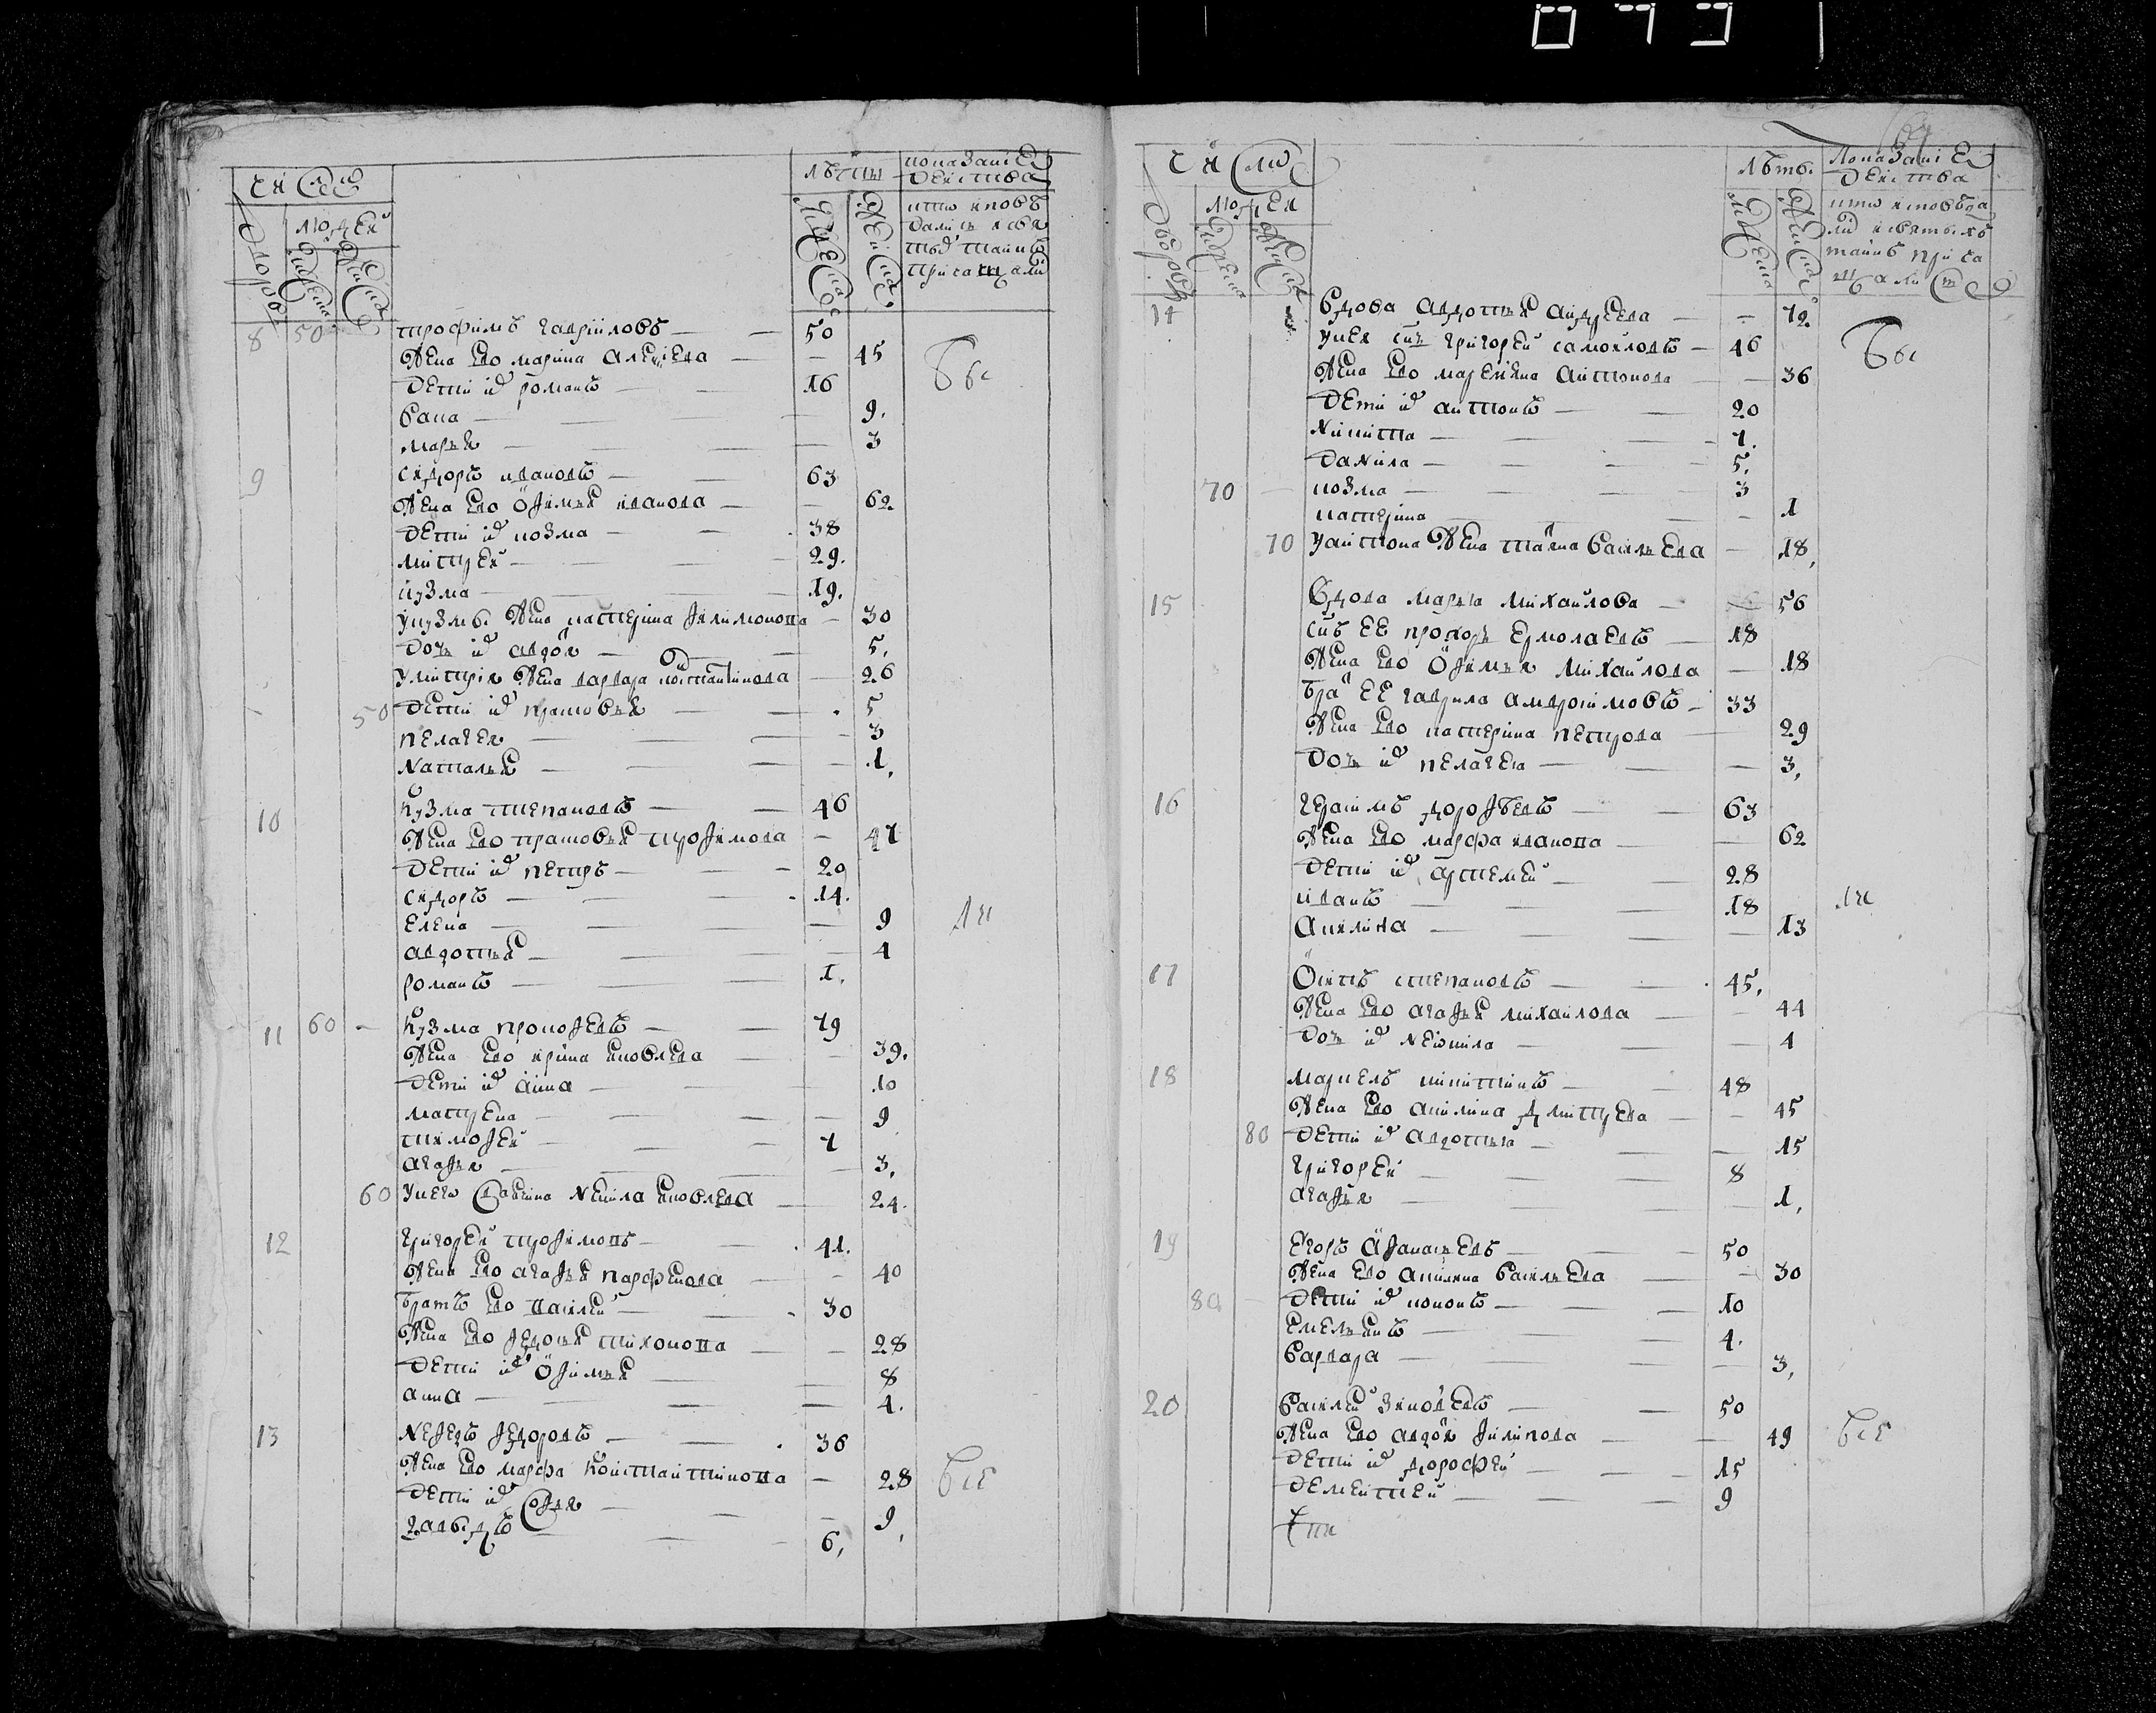 число
людей
дворовъ
мужеска
женска
лѣты
мужеска
женска
показаніе
действа
кто исповѣ
дались и свя
тыхъ таинъ
причащали
8 50 трофимъ гаврїиловъ 50
жена ево марина алексїева 45
дети их романъ 16
васа 9.
марья 3
9 сидоръ ивановъ 63
жена ево офимья иванова 62.
дети их козма 38
митрей 29.
кузма 19.
у кузмы жена катерина филимонова 30
дочь их авдоя 5.
у митрия жена варвара костантинова 26
50 дети их прасковья 5
пелагея 3
наталья 1.
10 кузма степановъ 46
жена ево прасковья трофимова 47
дети их петръ 20
сидоръ 14.
елена 9
авдотья 4
романъ 1.
11 60 кузма прокофевъ 49
жена ево ирина яковлева 39.
дети их анна 10
матрена 9
тимофей 7
агафья 3.
60 у него своячина ненила яковлева 24.
12 григорей трофимовъ 41.
жена ево агафья парфенова 40
братъ ево василей 30
жена ево федосья тихонова 28
дети их офимья 8
анна 4.
13 нефедъ федоровъ 36
жена ево марфа константинова 28
дети их софья 9.
давыдъ 6.
всѣ
число
людей
дворовъ
мужеска
женска
лѣтъ
мужеска
женска
показаніе
действа
кто исповѣда
ли и святыхъ
таинъ прича
щались
14 вдова авдотья андреева 72
у нея сынъ григорей самойловъ 46
жена ево маремьяна антонова 36
дети их антонъ 20
никита 7.
данила 5.
70 козма 3
катерина 1
70 у антона жена татьяна васильева 18.
15 вдова марья михайлова 56
сынъ ее прокопъ ермолаевъ 18
жена ево офимья михайлова 18
братъ ее гаврила амвросимовъ 33
жена ево катерина петрова 29
дочь их пелагея 3.
16 герасимъ дорофѣевъ 63
жена ево марфа иванова 62
дети их артемей 28
иванъ 18
акилина 13
17 осипъ степановъ 45.
жена ево агафья михайлова 44
дочь их неонила 4
18 маркелъ никитинъ 48
жена ево акилина дмитрева 45
80 дети их авдотья 15
григорей 8
агафья 1.
19 егоръ афанасьевъ 50
жена ево акилина васильева 30
80 дети их кононъ 10
емельянъ 4.
варвара 3.
20 василей зиновѣевъ 50
жена ево авдоя филипова 49
дети их дорофей 15
дементей 9
всѣ